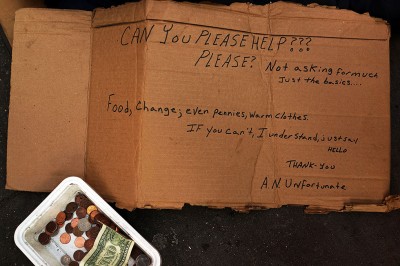 CAN YOU PLEASE HELP???
PLEASE?
Not asking for much
Just the basics....
Food, Change; even pennies, warm clothes.
IF you can't, I understand, just say
HELLO
THANK-YOU
AN UNfortunate